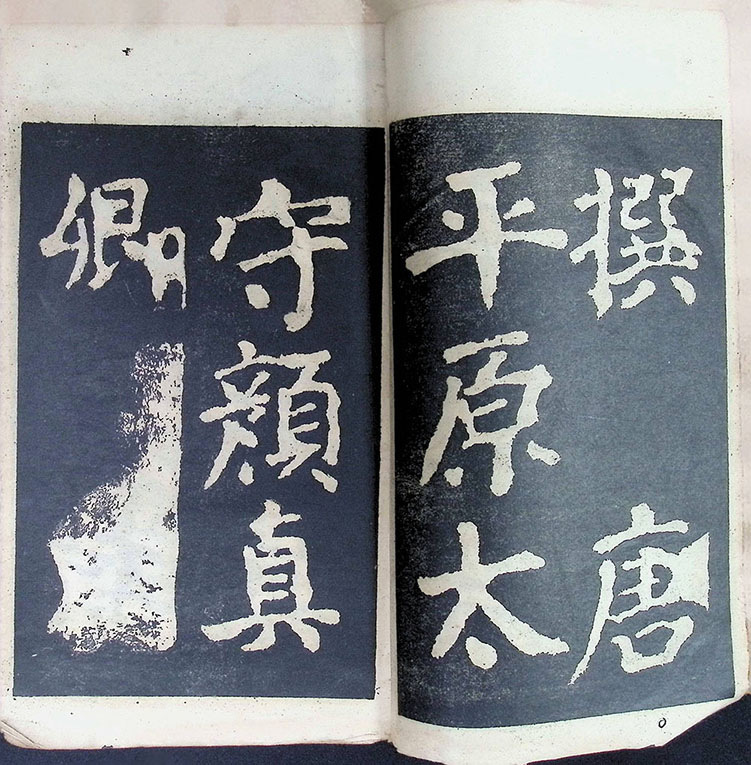 撰 唐
平原太
守顏真
卿